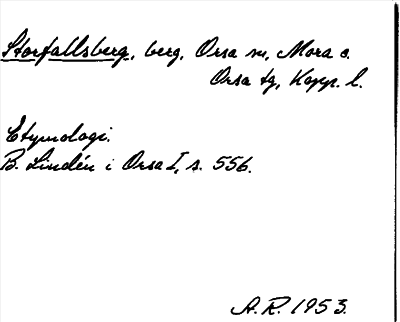 Storfallsberg, berg, Orsa sn, Mora o.
Orsa tg, Kopp. l.
Etymologi.
B. Lindén i Orsa I, s. 556.
A.R. 1953.